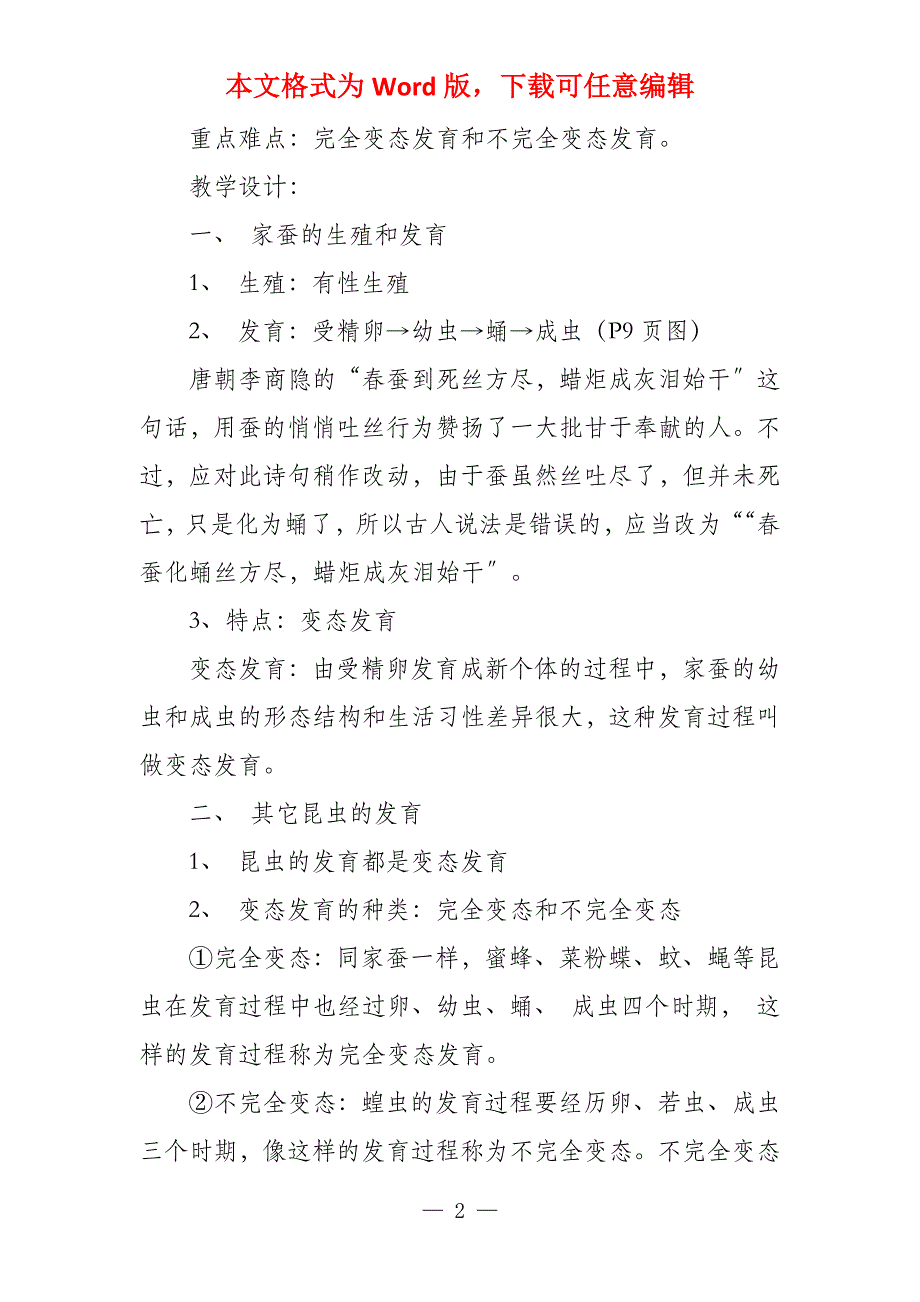 本文格式为 Word 版，下载可任意编辑
重点难点：完全变态发育和不完全变态发育。
教学设计：
一、 家蚕的生殖和发育
1、 生殖：有性生殖
2、 发育：受精卵→幼虫→蛹→成虫（P9 页图）
唐朝李商隐的“春蚕到死丝方尽，蜡炬成灰泪始干〞这
句话，用蚕的悄悄吐丝行为赞扬了一大批甘于奉献的人。不
过，应对此诗句稍作改动，由于蚕虽然丝吐尽了，但并未死
亡，只是化为蛹了，所以古人说法是错误的，应当改为““春
蚕化蛹丝方尽，蜡炬成灰泪始干〞。
3、特点：变态发育
变态发育：由受精卵发育成新个体的过程中，家蚕的幼
虫和成虫的形态结构和生活习性差异很大，这种发育过程叫
做变态发育。
二、 其它昆虫的发育
1、 昆虫的发育都是变态发育
2、 变态发育的种类：完全变态和不完全变态
①完全变态：同家蚕一样，蜜蜂、菜粉蝶、蚊、蝇等昆
虫在发育过程中也经过卵、幼虫、蛹、 成虫四个时期， 这
样的发育过程称为完全变态发育。
②不完全变态：蝗虫的发育过程要经历卵、若虫、成虫
三个时期，像这样的发育过程称为不完全变态。不完全变态
— 2 —